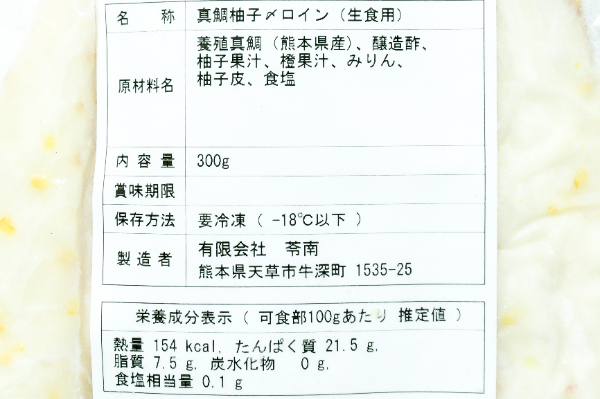 名称 真鯛柚子〆ロイン（生食用）
原材料名 養殖真鯛（熊本県産）、醸造酢、
柚子果汁、橙果汁、みりん、
柚子皮、食塩
内容量 300g
賞味期限
保存方法 要冷凍（ -18℃以下 ）
製造者 有限会社 苓南
熊本県天草市牛深町 1535-25
栄養成分表示（ 可食部100gあたり 推定値 ）
熱量 154 kcal, たんぱく質 21.5 g,
脂質 7.5 g, 炭水化物 0 g,
食塩相当量 0.1 g